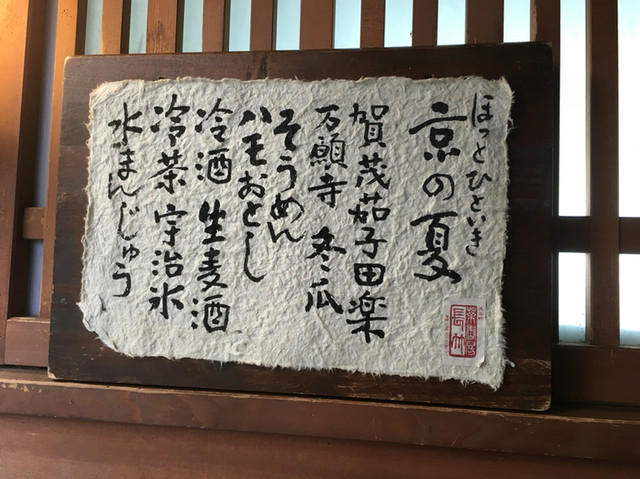 ほっとひといき
京の夏
賀茂茄子田楽
万願寺 冬瓜
そうめん
ハモおとし
冷酒 生麦酒
冷茶 宇治氷
水まんじゅう
長竹